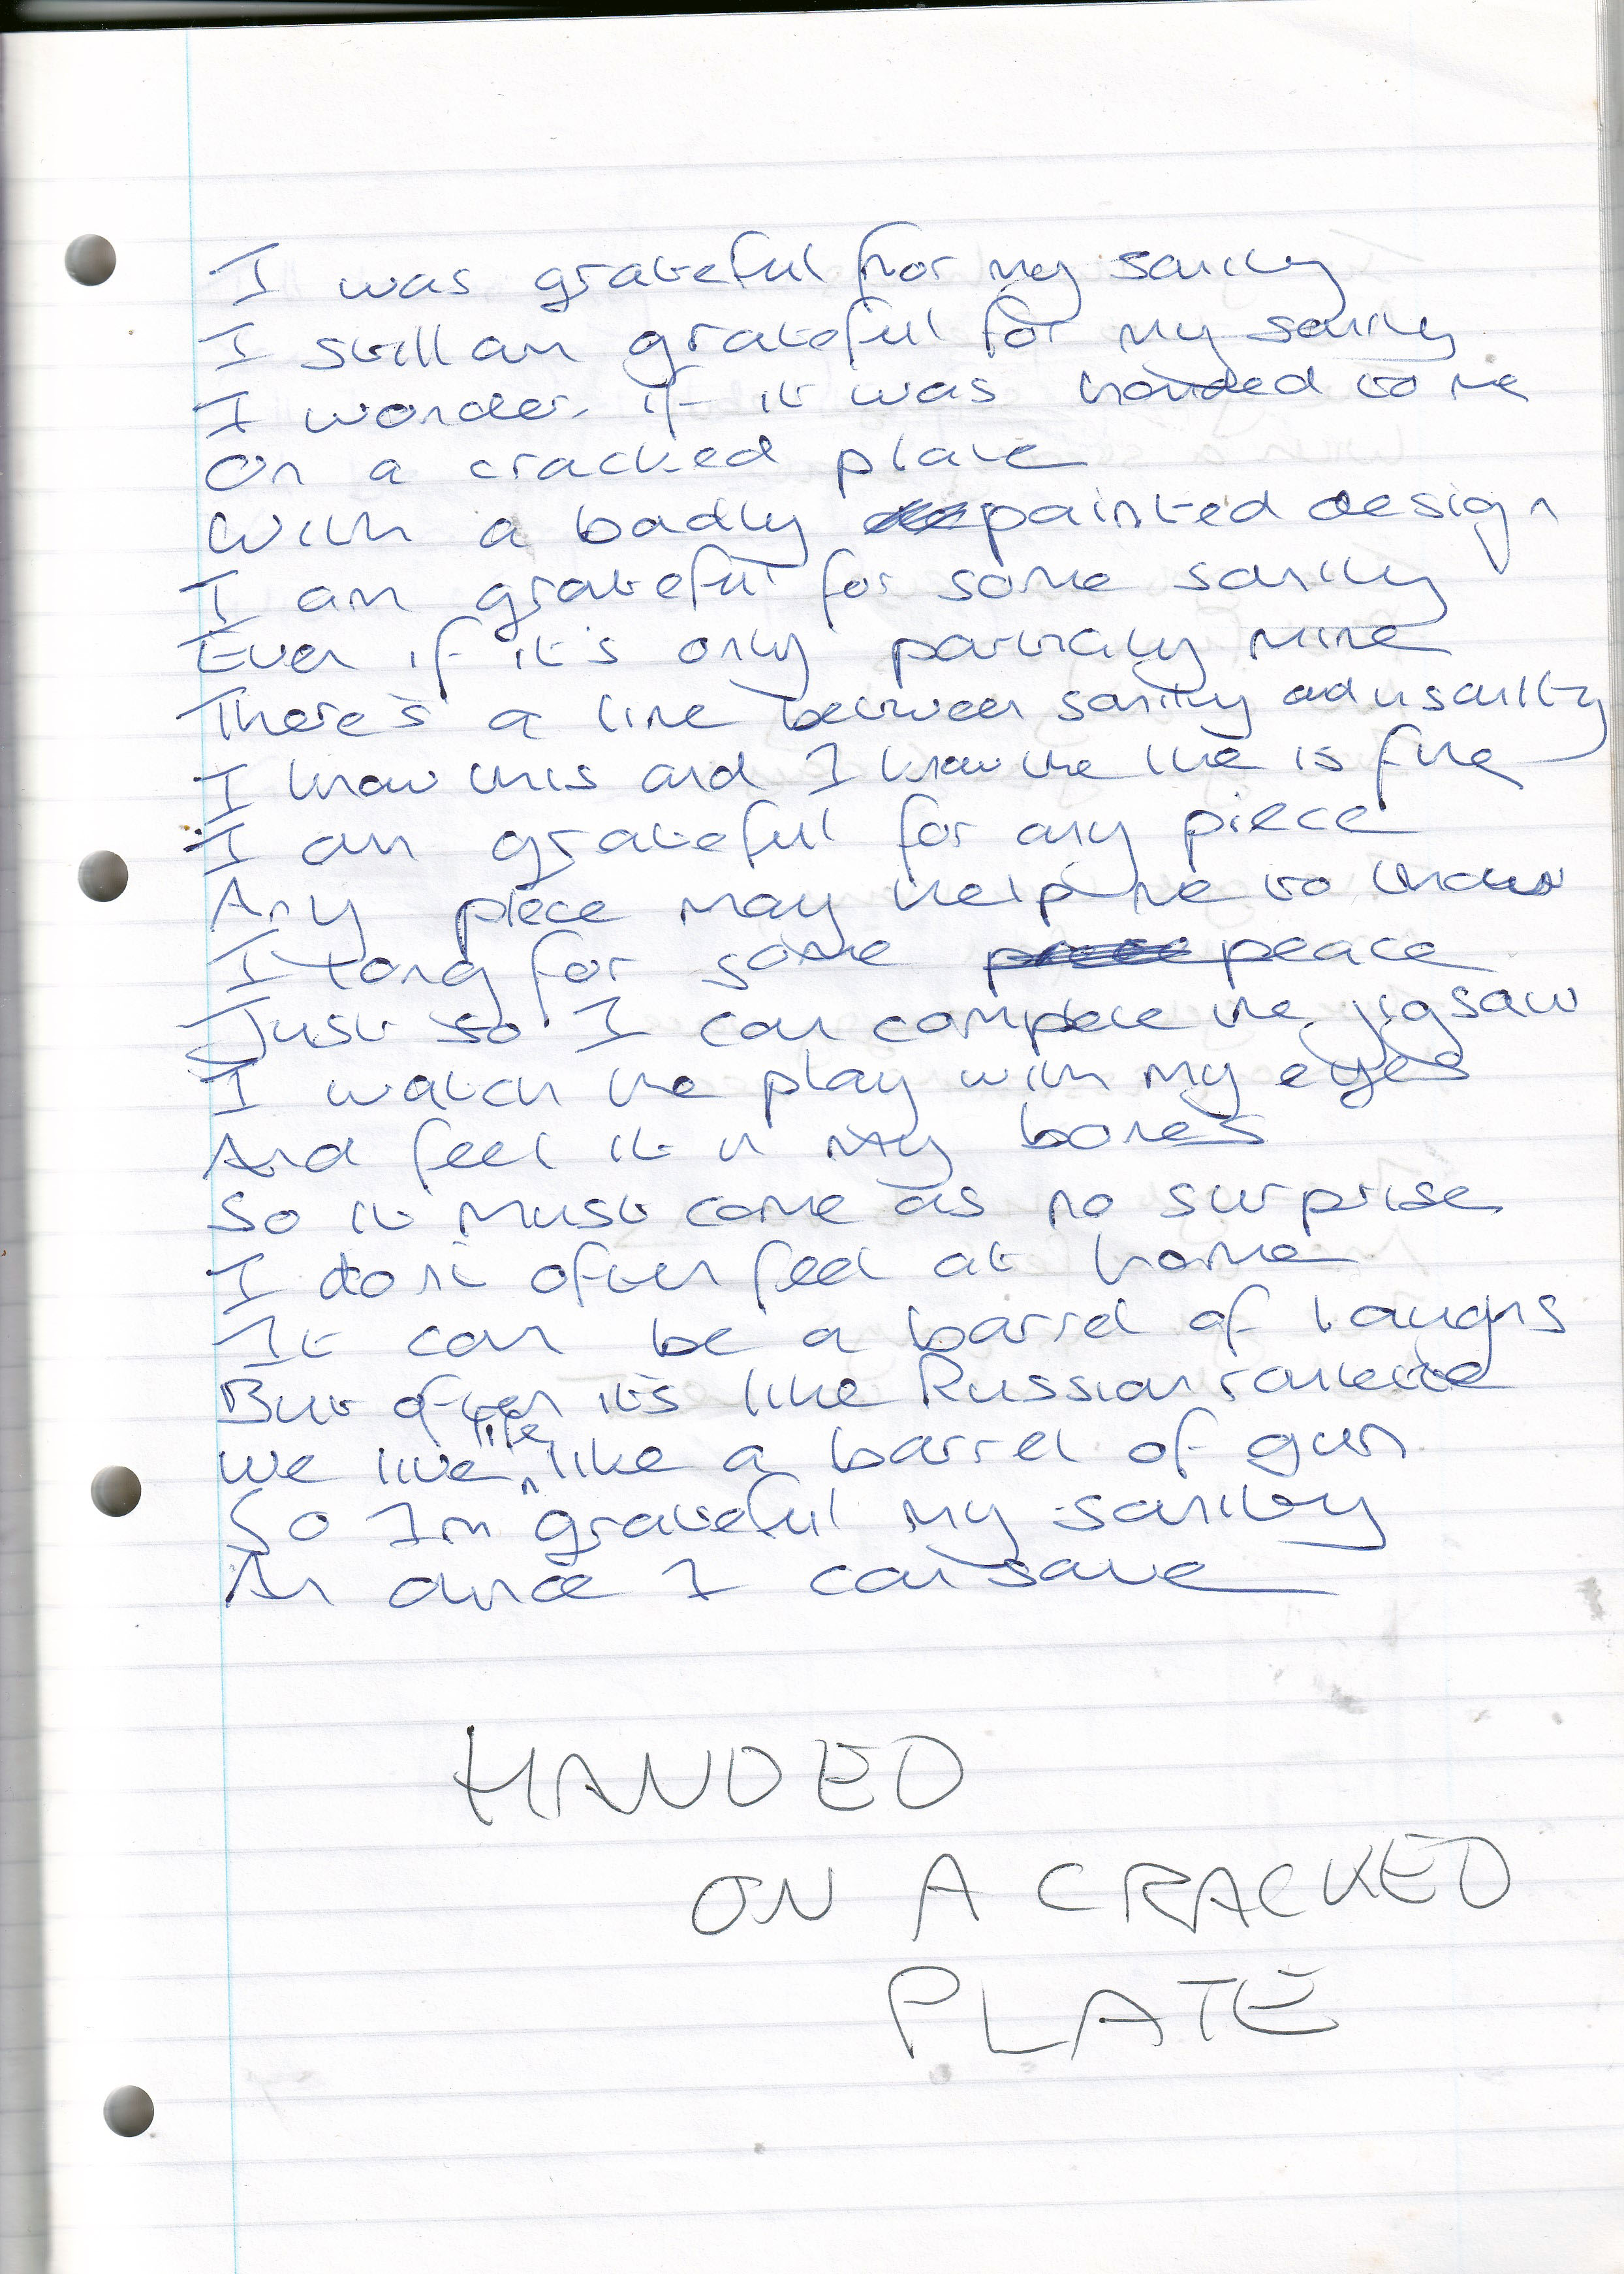 I was grateful for my sanity
I still am grateful for my sanity
I wonder if it was handed to me
On a cracked plate
With a badly painted design
I am grateful for some sanity
Even if it's only partially mine
There's a line between sanity and insanity
I know this and I know the line is fine
I am grateful for any piece
Any piece may help me to know
I long for some peace
Just so I can complete the jigsaw
I watch the play with my eyes
And feel it in my bones
So it must come as no surprise
I don't often feel at home
It can be a barrel of laughs
But often it's like Russian roulette
We live life like a barrel of gun
So Im grateful my sanity
I can save
HANDED
ON A CRACKED
PLATE